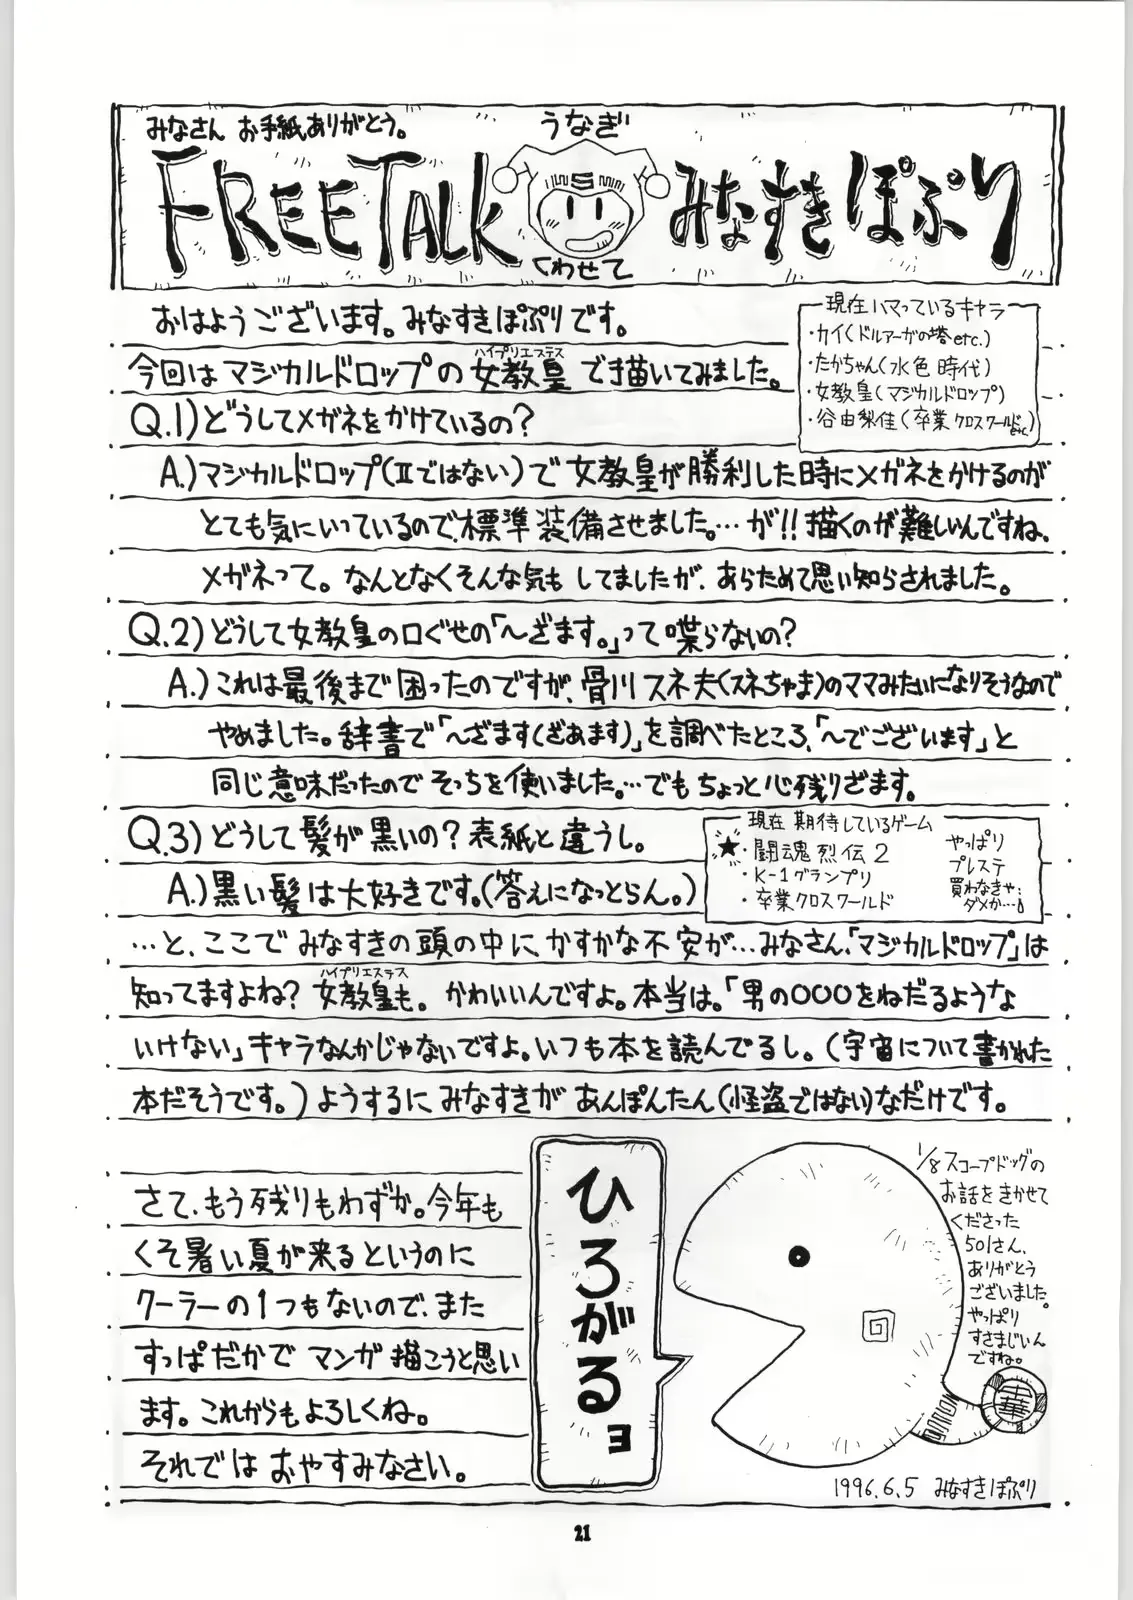 みなさん お手紙ありがとう。
FREE TALK
うなぎ
くわせて
みなすきぽぷり
おはようございます。みなすきぽぷりです。
今回はマジカルドロップの女教皇で描いてみました。
ハイプリエステス
現在ハマっているキャラ
・カイ(ドルアーガの塔etc.)
・たかちゃん(水色時代)
・女教皇(マジカルドロップ)
・谷由梨佳(卒業クロスワールドetc.)
Q.1)どうしてメガネをかけているの?
A.)マジカルドロップ(Ⅱではない)で女教皇が勝利した時にメガネをかけるのが
とても気にいっているので、標準装備させました。…が!!描くのが難しいんですね、
メガネって。なんとなくそんな気もしてましたが、あらためて思い知らされました。
Q.2)どうして女教皇の口ぐせの「～ざます。」って喋らないの?
A.)これは最後まで困ったのですが、骨川スネ夫(スネちゃま)のママみたいになりそうなので
やめました。辞書で「～ざます(ざあます)」を調べたところ、「～でございます」と
同じ意味だったのでそっちを使いました。…でもちょっと心残りざます。
Q.3)どうして髪が黒いの?表紙と違うし。
A.)黒い髪は大好きです。(答えになっとらん。)
現在期待しているゲーム
★・闘魂烈伝2
・K-1グランプリ
・卒業クロスワールド
やっぱり
プレステ
買わなきゃ
ダメか…。
…と、ここでみなすきの頭の中に、かすかな不安が…みなさん、「マジカルドロップ」は
知ってますよね?女教皇も。かわいいんですよ。本当は。「男の○○○をねだるような
ハイプリエステス
いけない」キャラなんかじゃないですよ。いつも本を読んでるし。(宇宙について書かれた
本だそうです。)ようするにみなすきがあんぽんたん(怪盗ではない)なだけです。
さて、もう残りもわずか。今年も
くそ暑い夏が来るというのに
クーラーの1つもないので、また
すっぱだかでマンガ描こうと思い
ます。これからもよろしくね。
それではおやすみなさい。
ひろがるヨ
回
1/8スコープドッグの
お話をきかせて
くださった
501さん、
ありがとう
ございました。
やっぱり
すさまじいん
ですね。
中華
1996.6.5 みなすきぽぷり
21